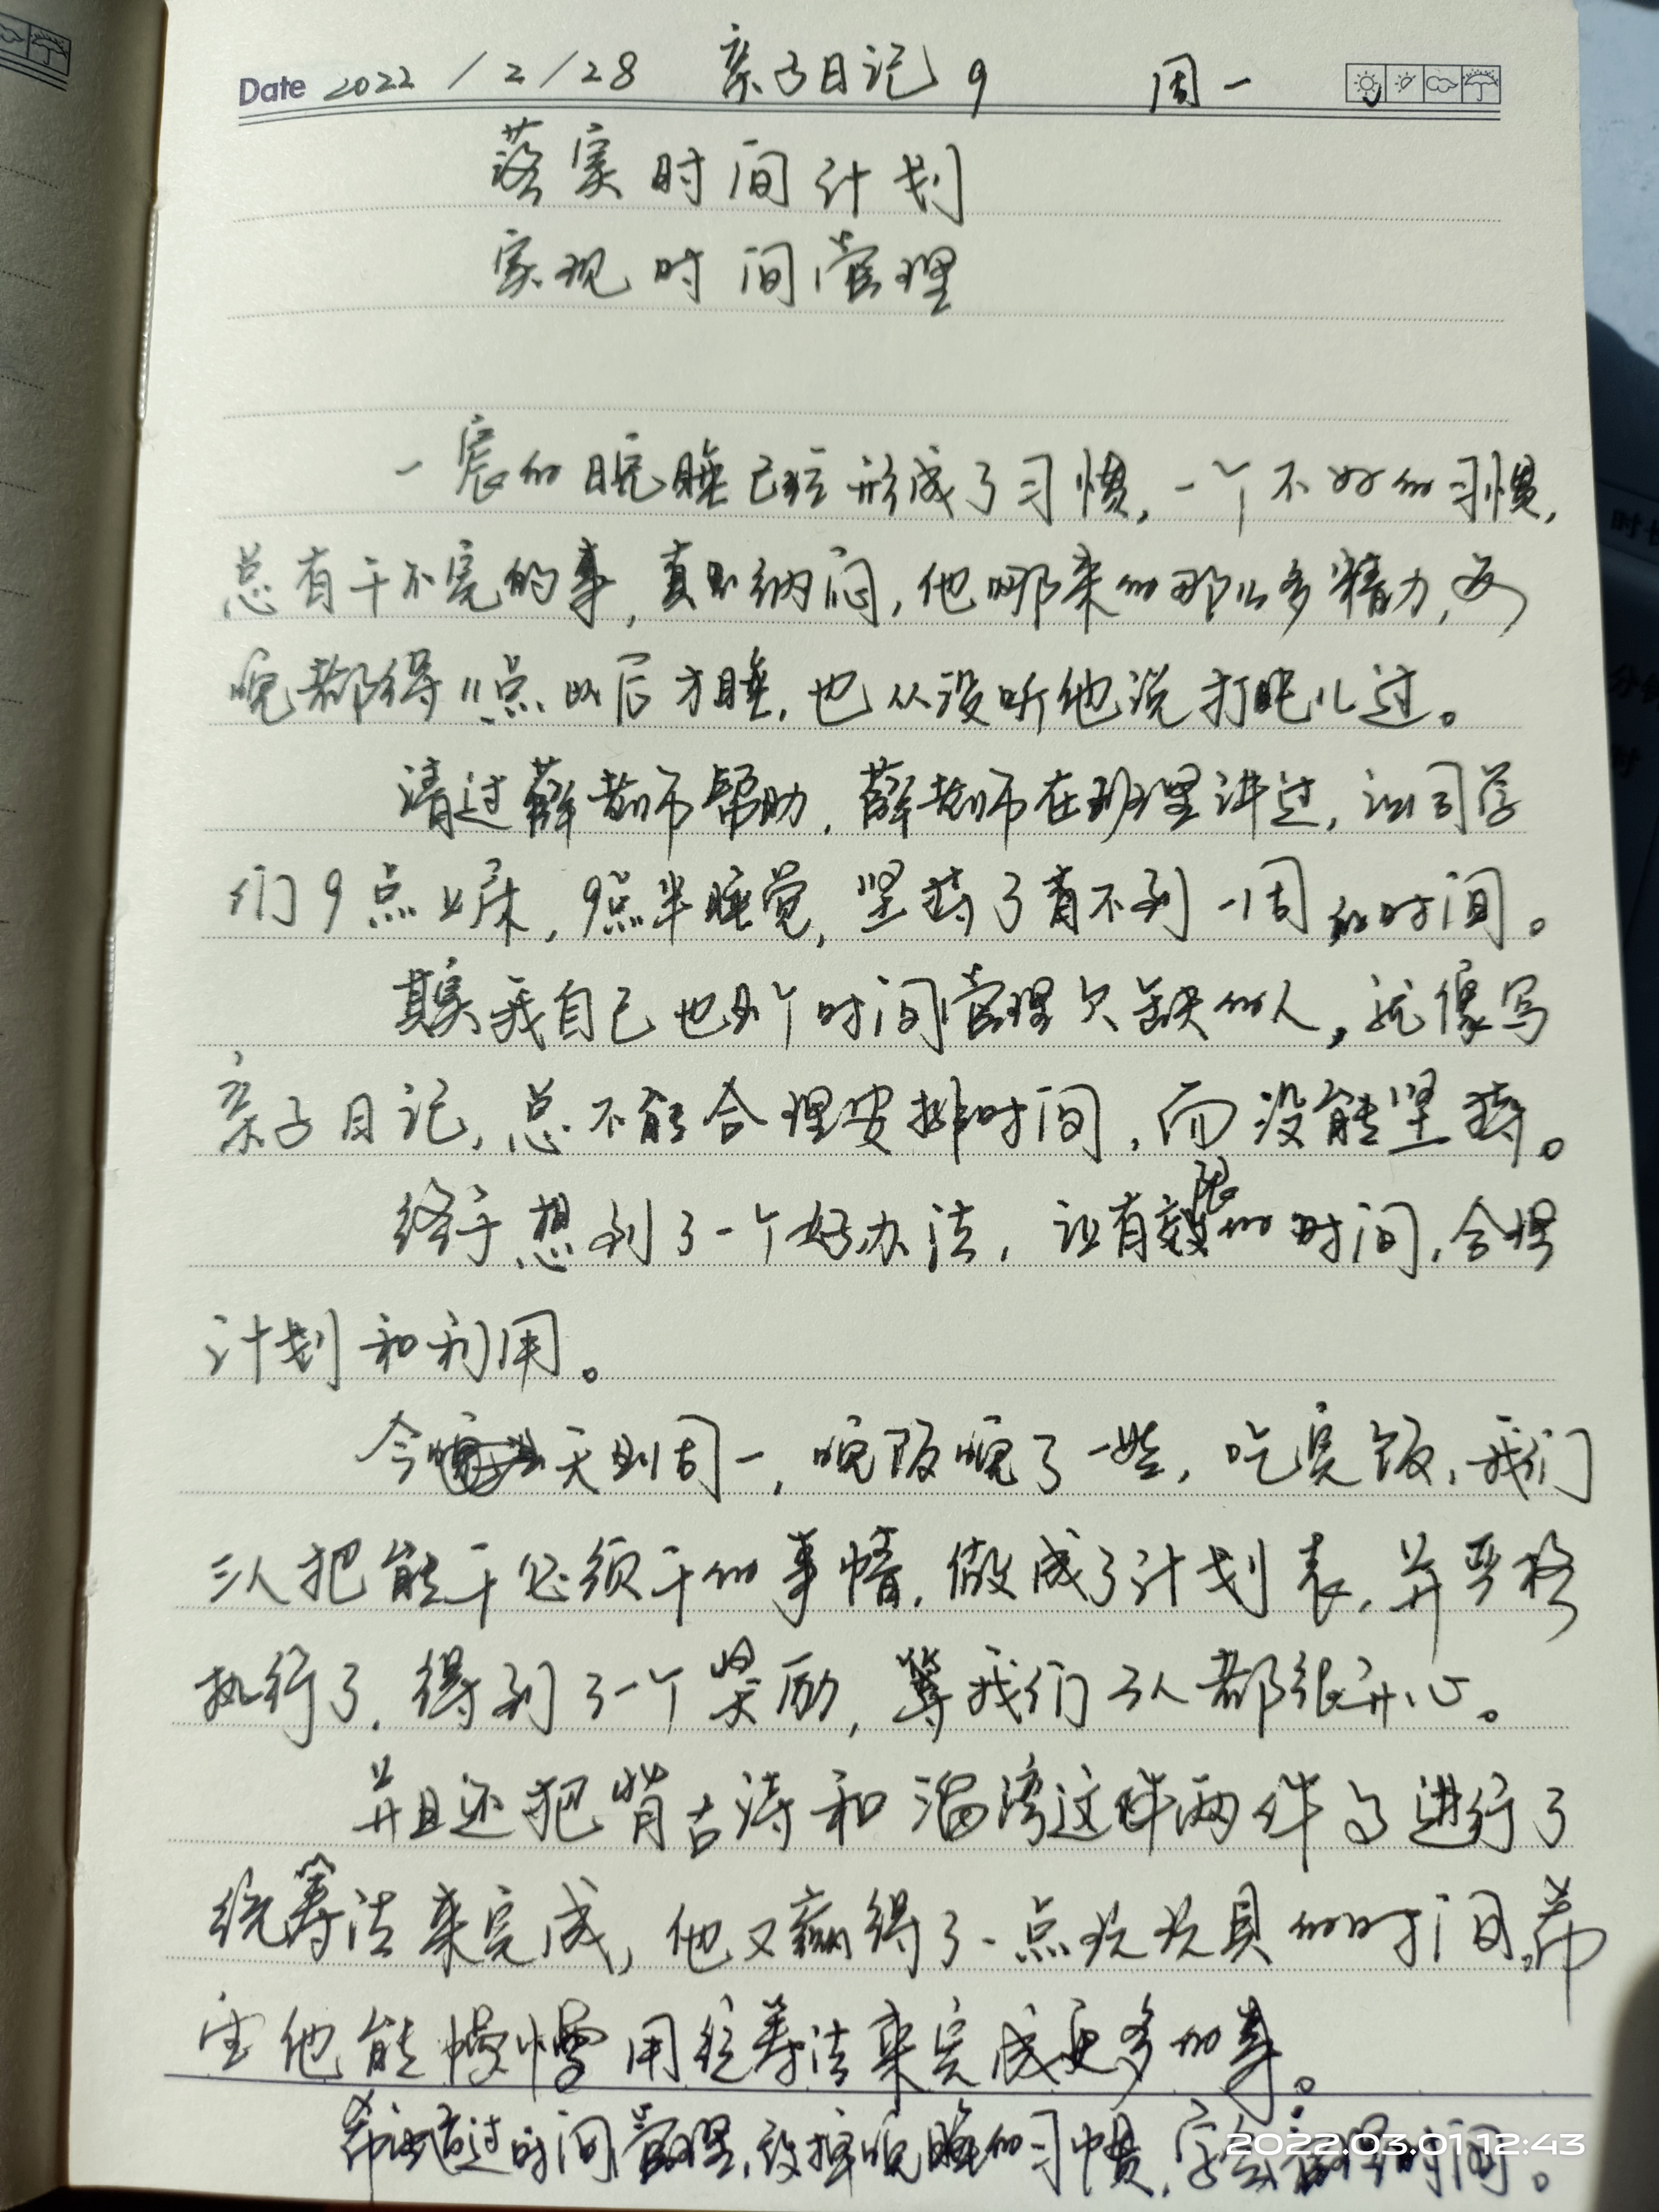 Date 2022/2/28 亲子日记9 周一
落实时间计划
实现时间管理
一宸的晚睡已经形成了习惯,一个不好的习惯,
总有干不完的事,真是纳闷,他哪来的那么多精力,每
晚都得11点以后才睡,也从没听他说打盹儿过。
请过薛老师帮助,薛老师在班里讲过,让同学
们9点上床,9点半睡觉,坚持了有不到一周的时间。
其实我自己也是个时间管理欠缺的人,就像写
亲子日记,总不能合理安排时间,而没能坚持。
终于想到了一个好办法,让有限的时间,合理
计划和利用。
今天是周一,晚饭晚了一些,吃完饭,我们
三人把能干必须干的事情,做成了计划表,并严格
执行了,得到了一个奖励,等我们三人都很开心。
并且还把背古诗和溜弯这两件事进行了
统筹法来完成,他又赢得了一点玩玩具的时间,希
望他能慢慢用统筹法来完成更多的事。
希望通过时间管理,改掉晚睡的习惯,学会管理时间。
2022.03.01 12:43